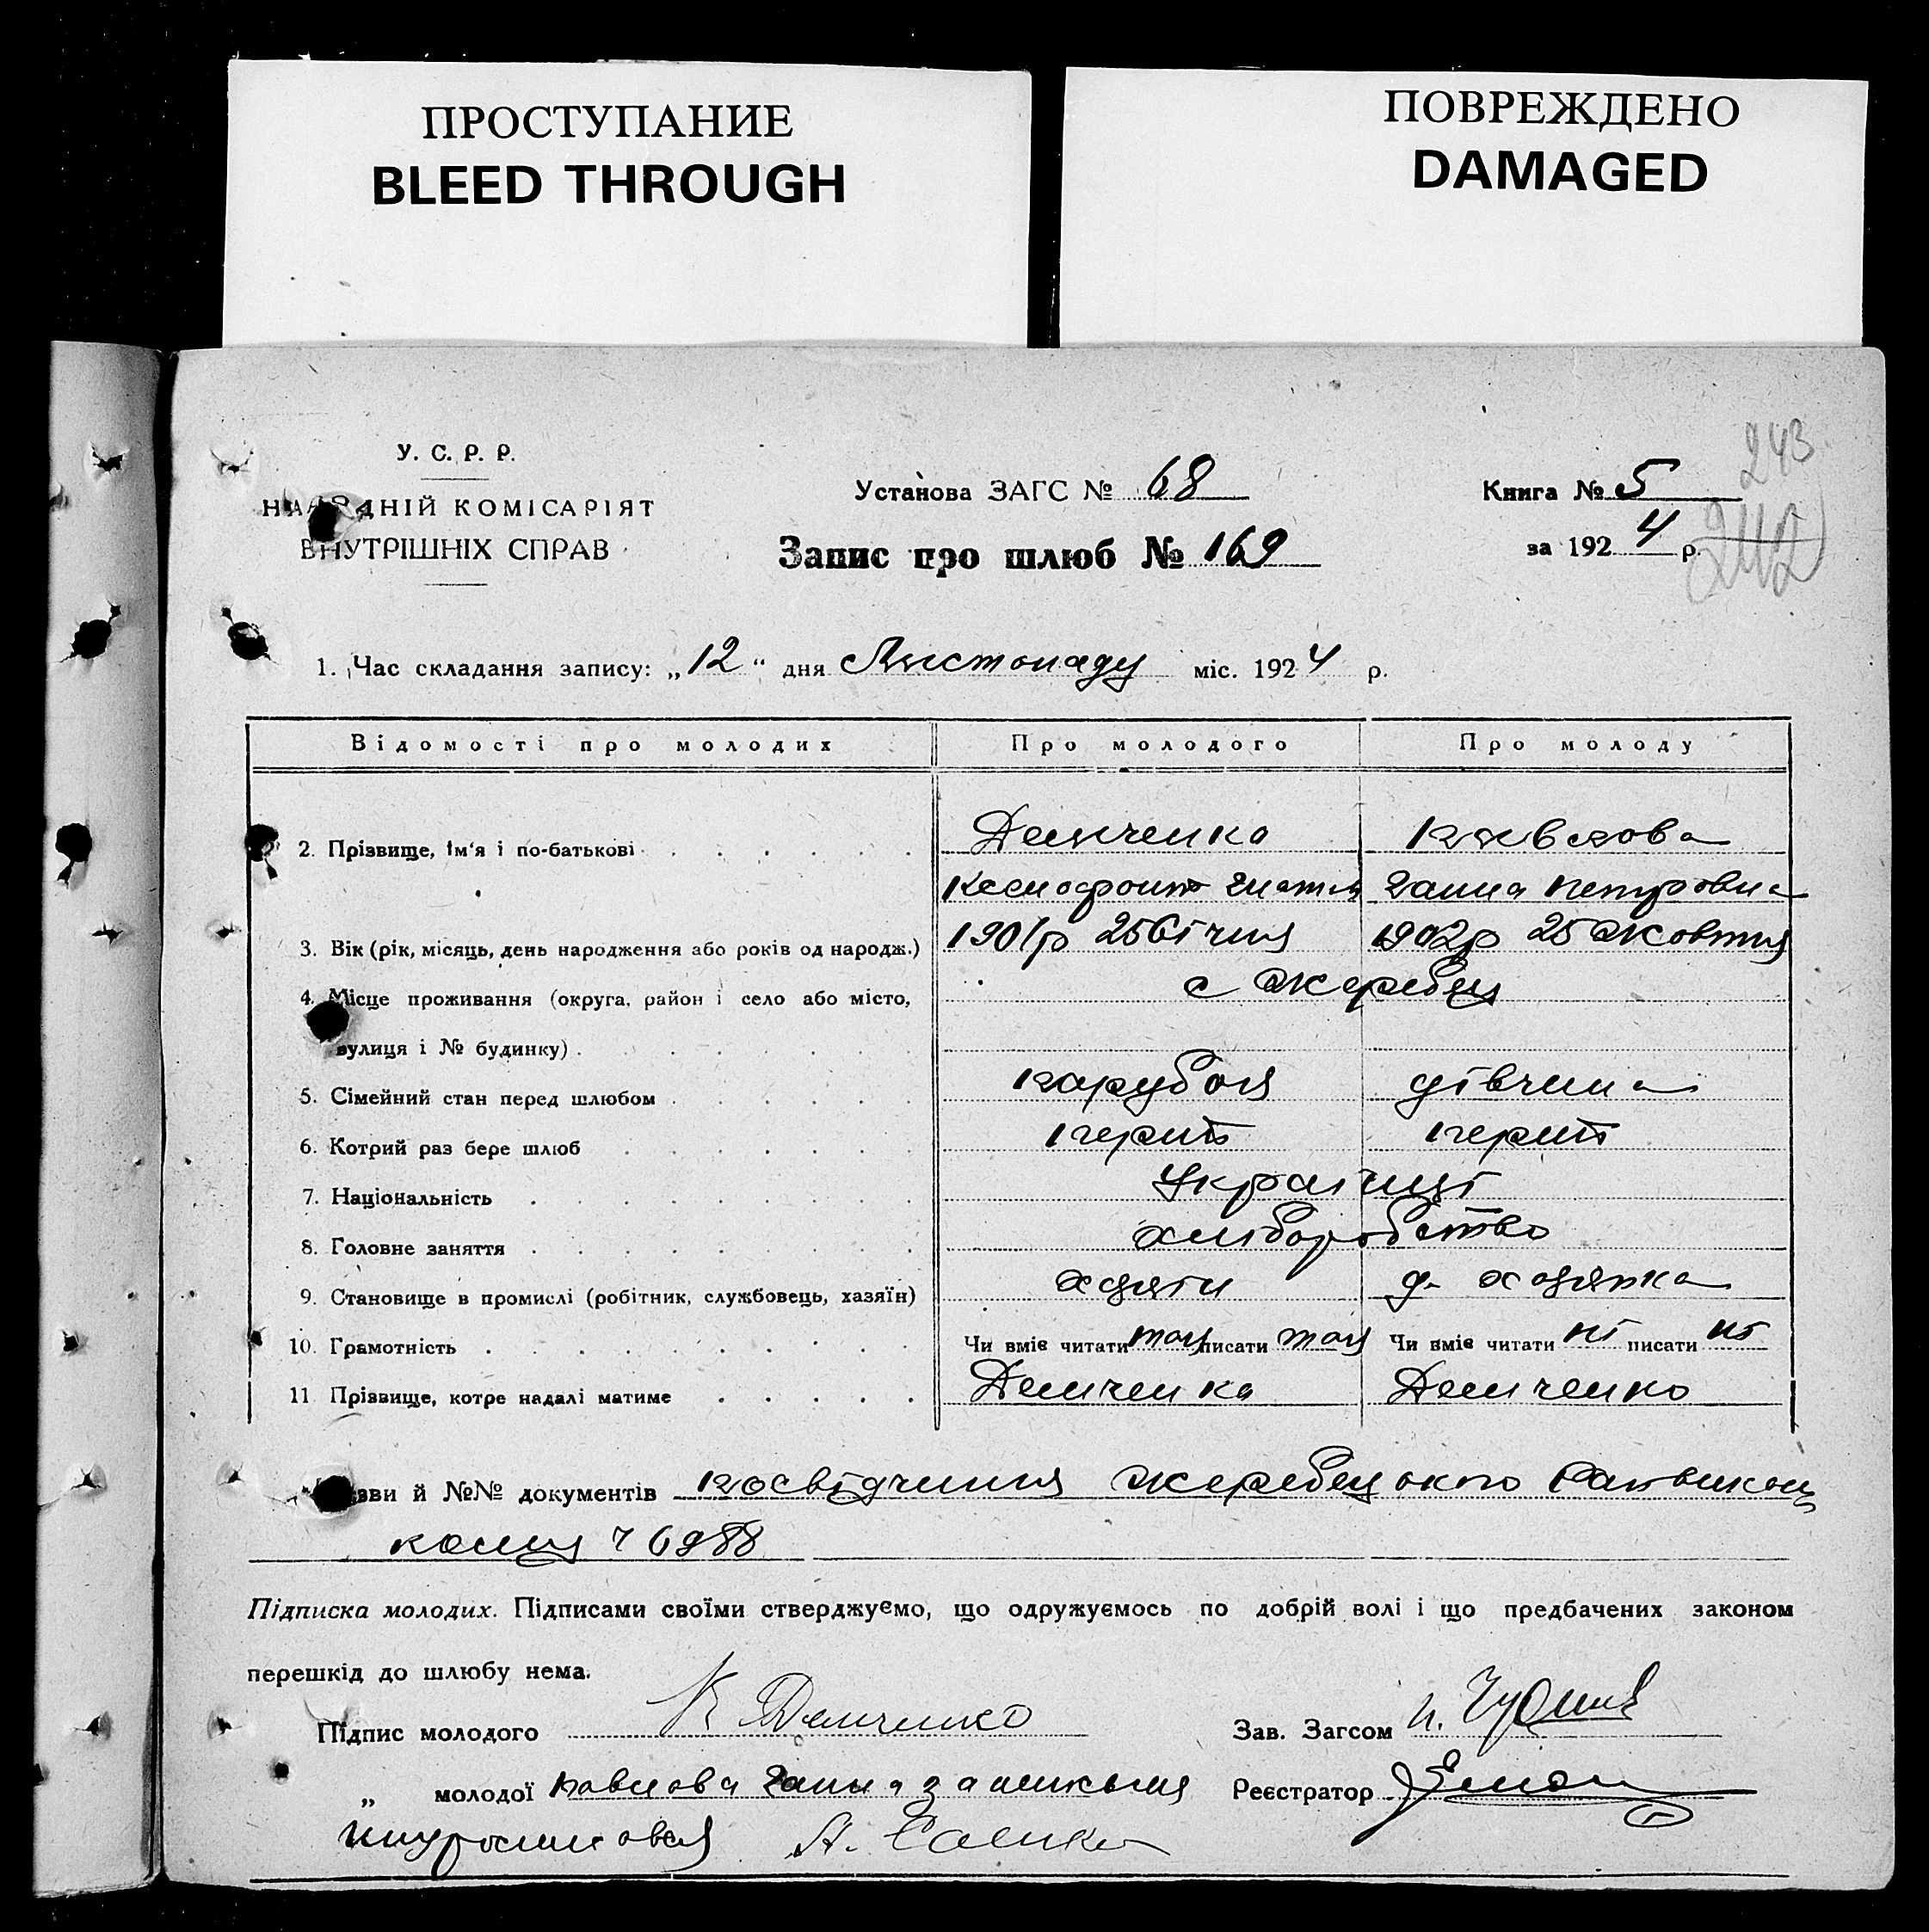 ПРОСТУПАНИЕ
BLEED THROUGH
ПОВРЕЖДЕНО
DAMAGED
243
242
У. С. Р. Р.
НАРОДНІЙ КОМІСАРІЯТ
ВНУТРІШНІХ СПРАВ
Установа ЗАГС № 68
Запис про шлюб № 169
Книга № 5
за 1924 р.
1. Час складання запису: „12“ дня Листопаду міс. 1924 р.
Відомості про молодих Про молодого Про молоду
2. Прізвище, ім'я і по-батькові Демченко Павлова
Ксенофонт Гнатів Ганна Петровна
3. Вік (рік, місяць, день народження або років од народж.) 1901р 25 Січня 1902р 25 Жовтня
4. Місце проживання (округа, район і село або місто, с Жеребец
вулиця і № будинку)
5. Сімейний стан перед шлюбом парубок дівчина
6. Котрий раз бере шлюб перший перший
7. Національність Українці
8. Головне заняття хліборобство
9. Становище в промислі (робітник, службовець, хазяїн)
10. Грамотність Чи вміє читати так писати так Чи вміє читати ні писати ні
11 Прізвище, котре надалі матиме Демченко Демченко
Назви й №№ документів посвідчення Жеребецького
6988
Підписка молодих. Підписами своїми стверджуємо, що одружуємось по добрій волі і що предбачених законом
перешкід до шлюбу нема.
Підпис молодого К Демченко Зав. Загсом
„ молодої Павлова Ганна Реєстратор